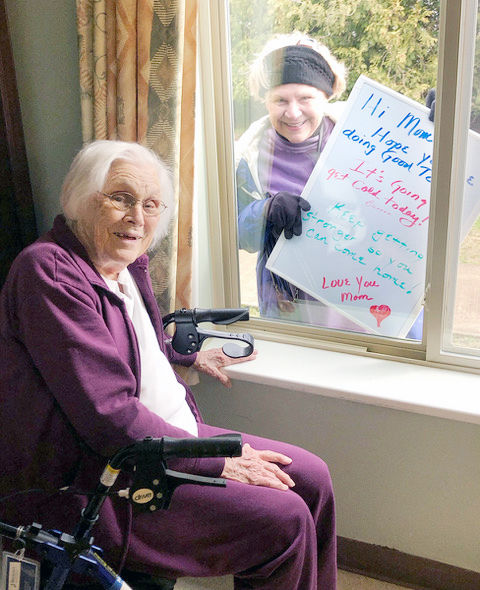 Hi Mom
Hope y
doing Good T
It's going
get Cold today!
Keep getting
stronger so you
can come home!
Love You
Mom
drive